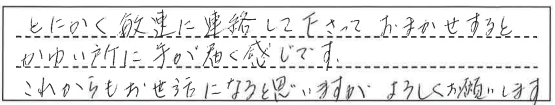 とにかく敏速に連絡して下さって おまかせすると
かゆい所に手が届く感じです。
これからもお世話になると思いますが よろしくお願いします